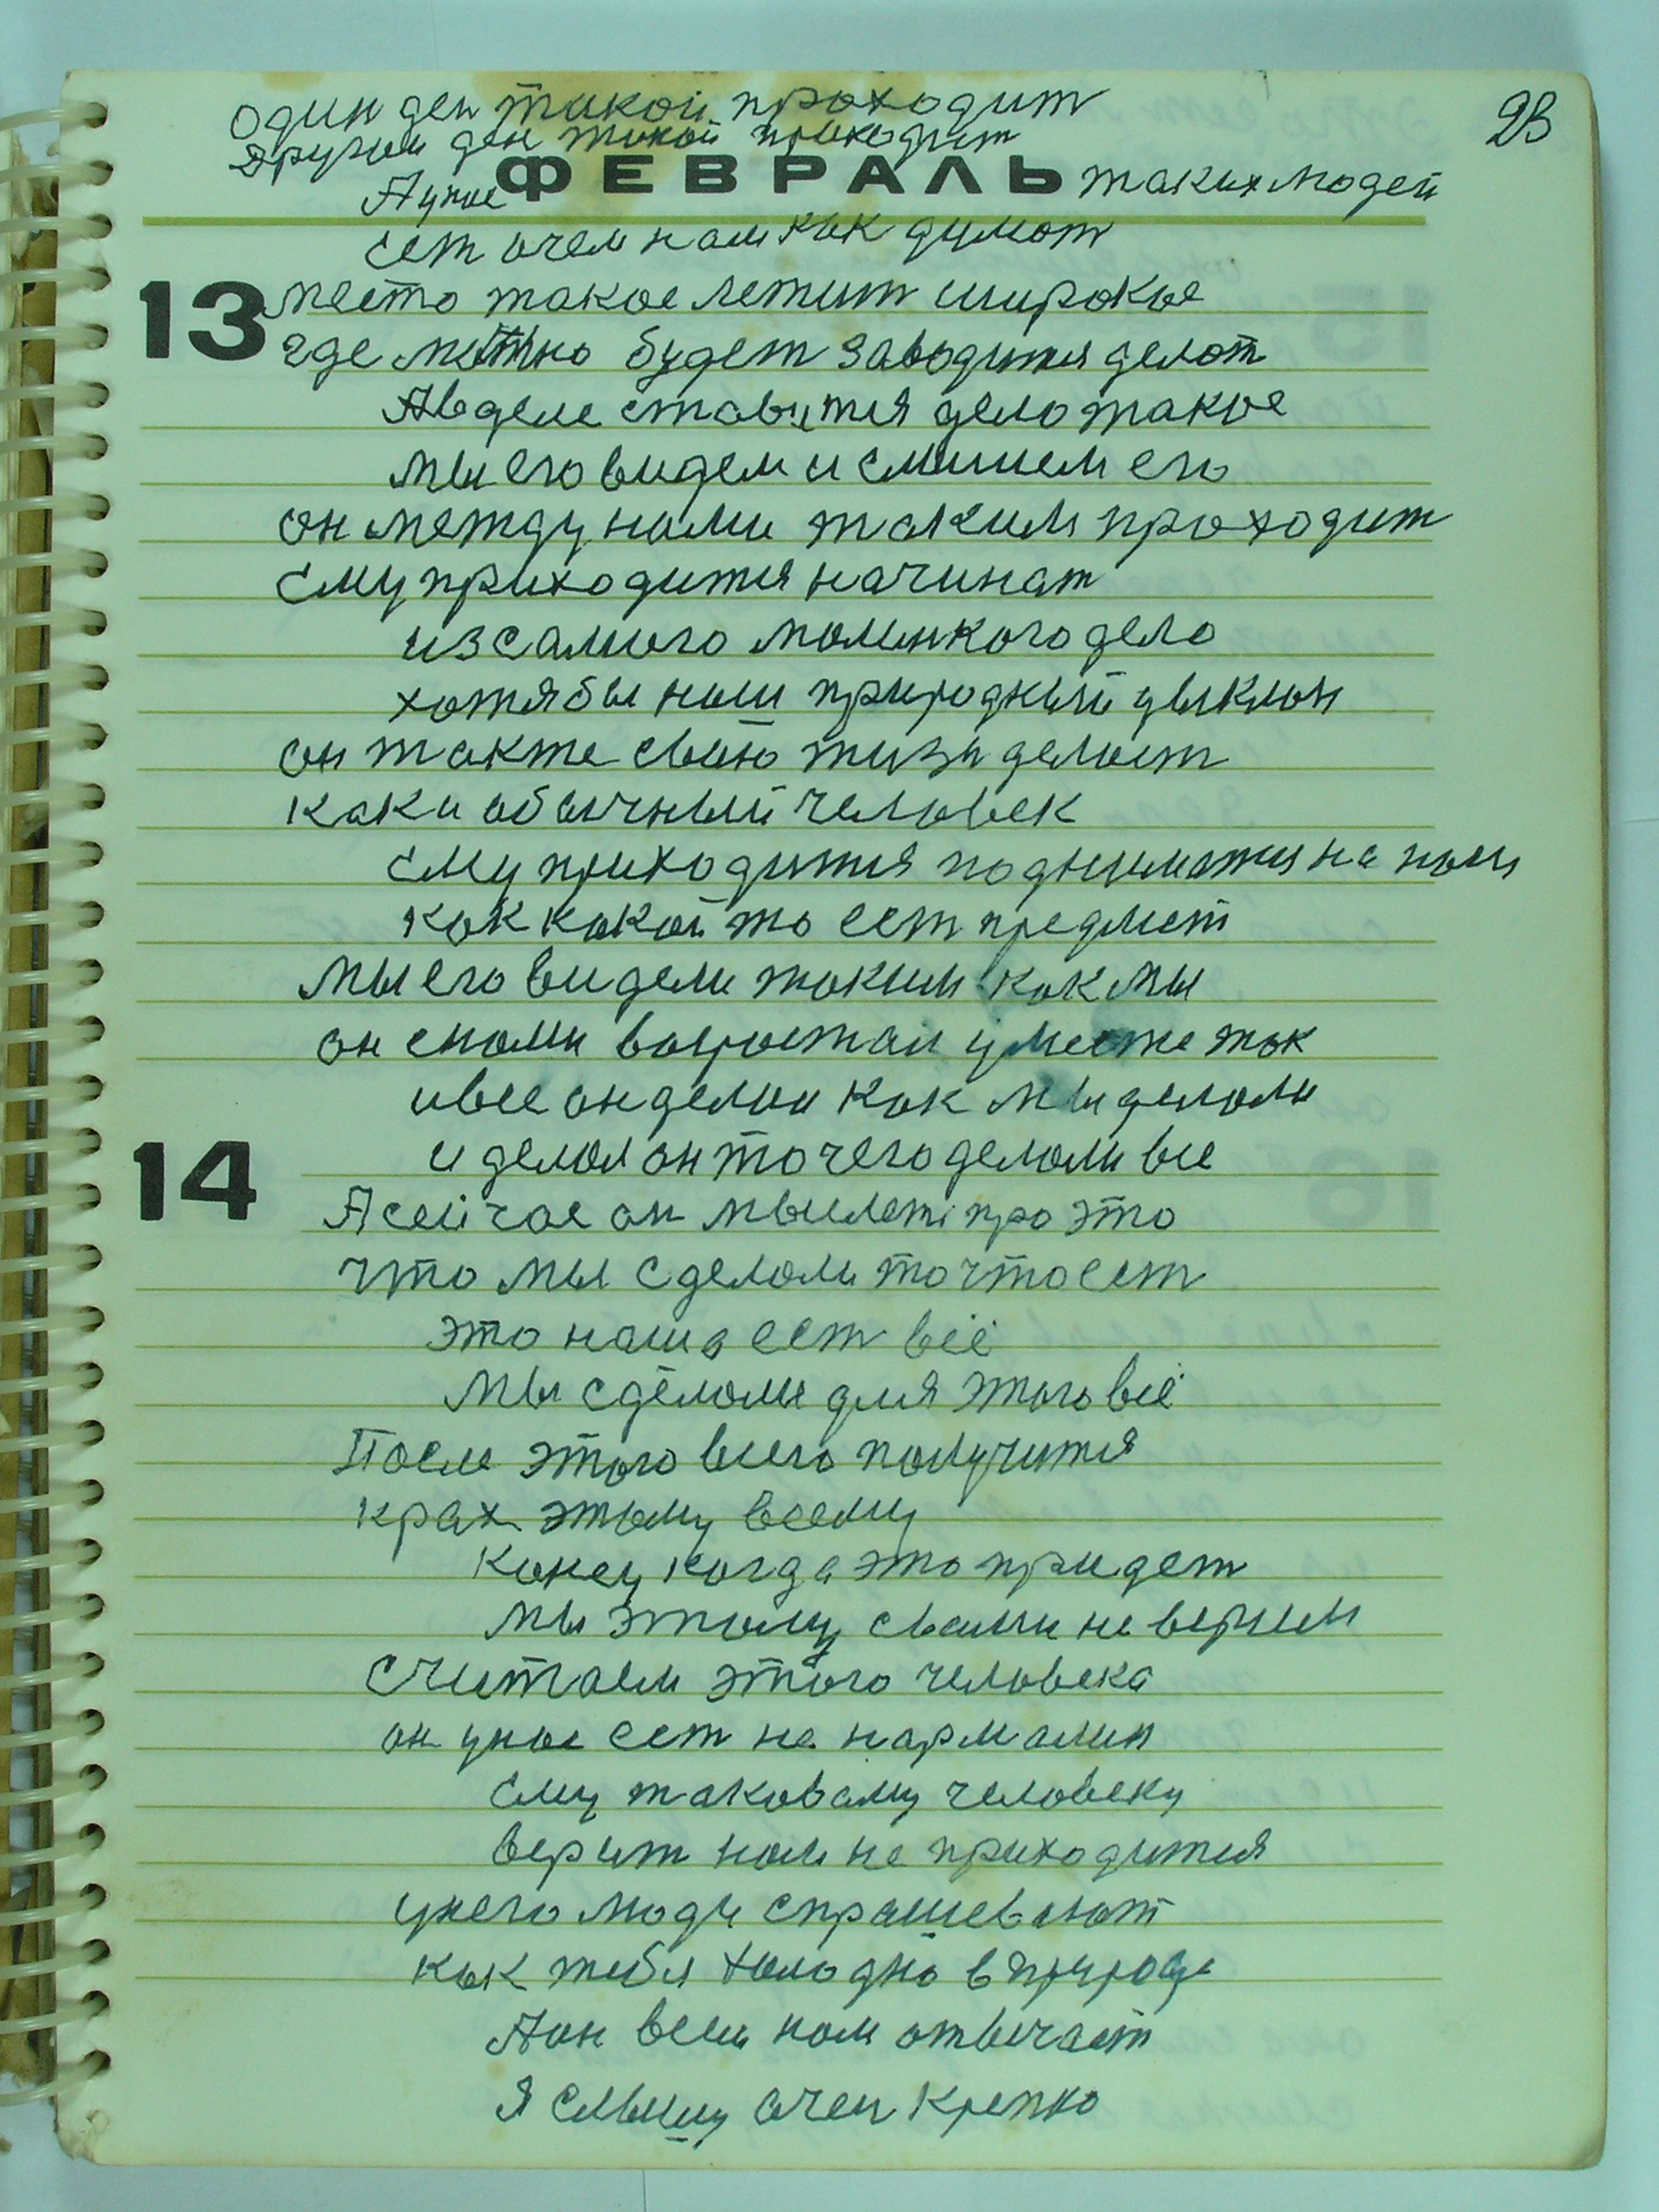 один ден такой проходит
23
другой ден такой приходит
ФЕВРАЛЬ
А унас таких людей
ест очем нам как думат
13
место такое лежит широкое
где можно будет заводится делат
Авделе ставится дело такое
мы его видем и слышем его
он между нами таким проходит
ему приходится начинат
из самого маленкого дело
хотябы наш природный цыклон
он также свою жизн делает
как и обычный человек
ему приходится подниматся на ноги
как какой то ест предмет
мы его видели таким как мы
он снами вырастал уместе так
ивсе он делал как мы делали
14
и делал он то чего делали все
А сейчас он мыслет про это
что мы сделали то что ест
это наша ест всё
мы сделали для этого всё
После этого всего получится
крах этому всему
конец когда это придет
мы этому свами не верим
считаем этого человека
он унас ест не нармален
ему таковому человеку
верит нам не приходится
унего люди спрашевают
как тибя холодно в природе
Аон всем нам отвичает
я слышу очен крепко